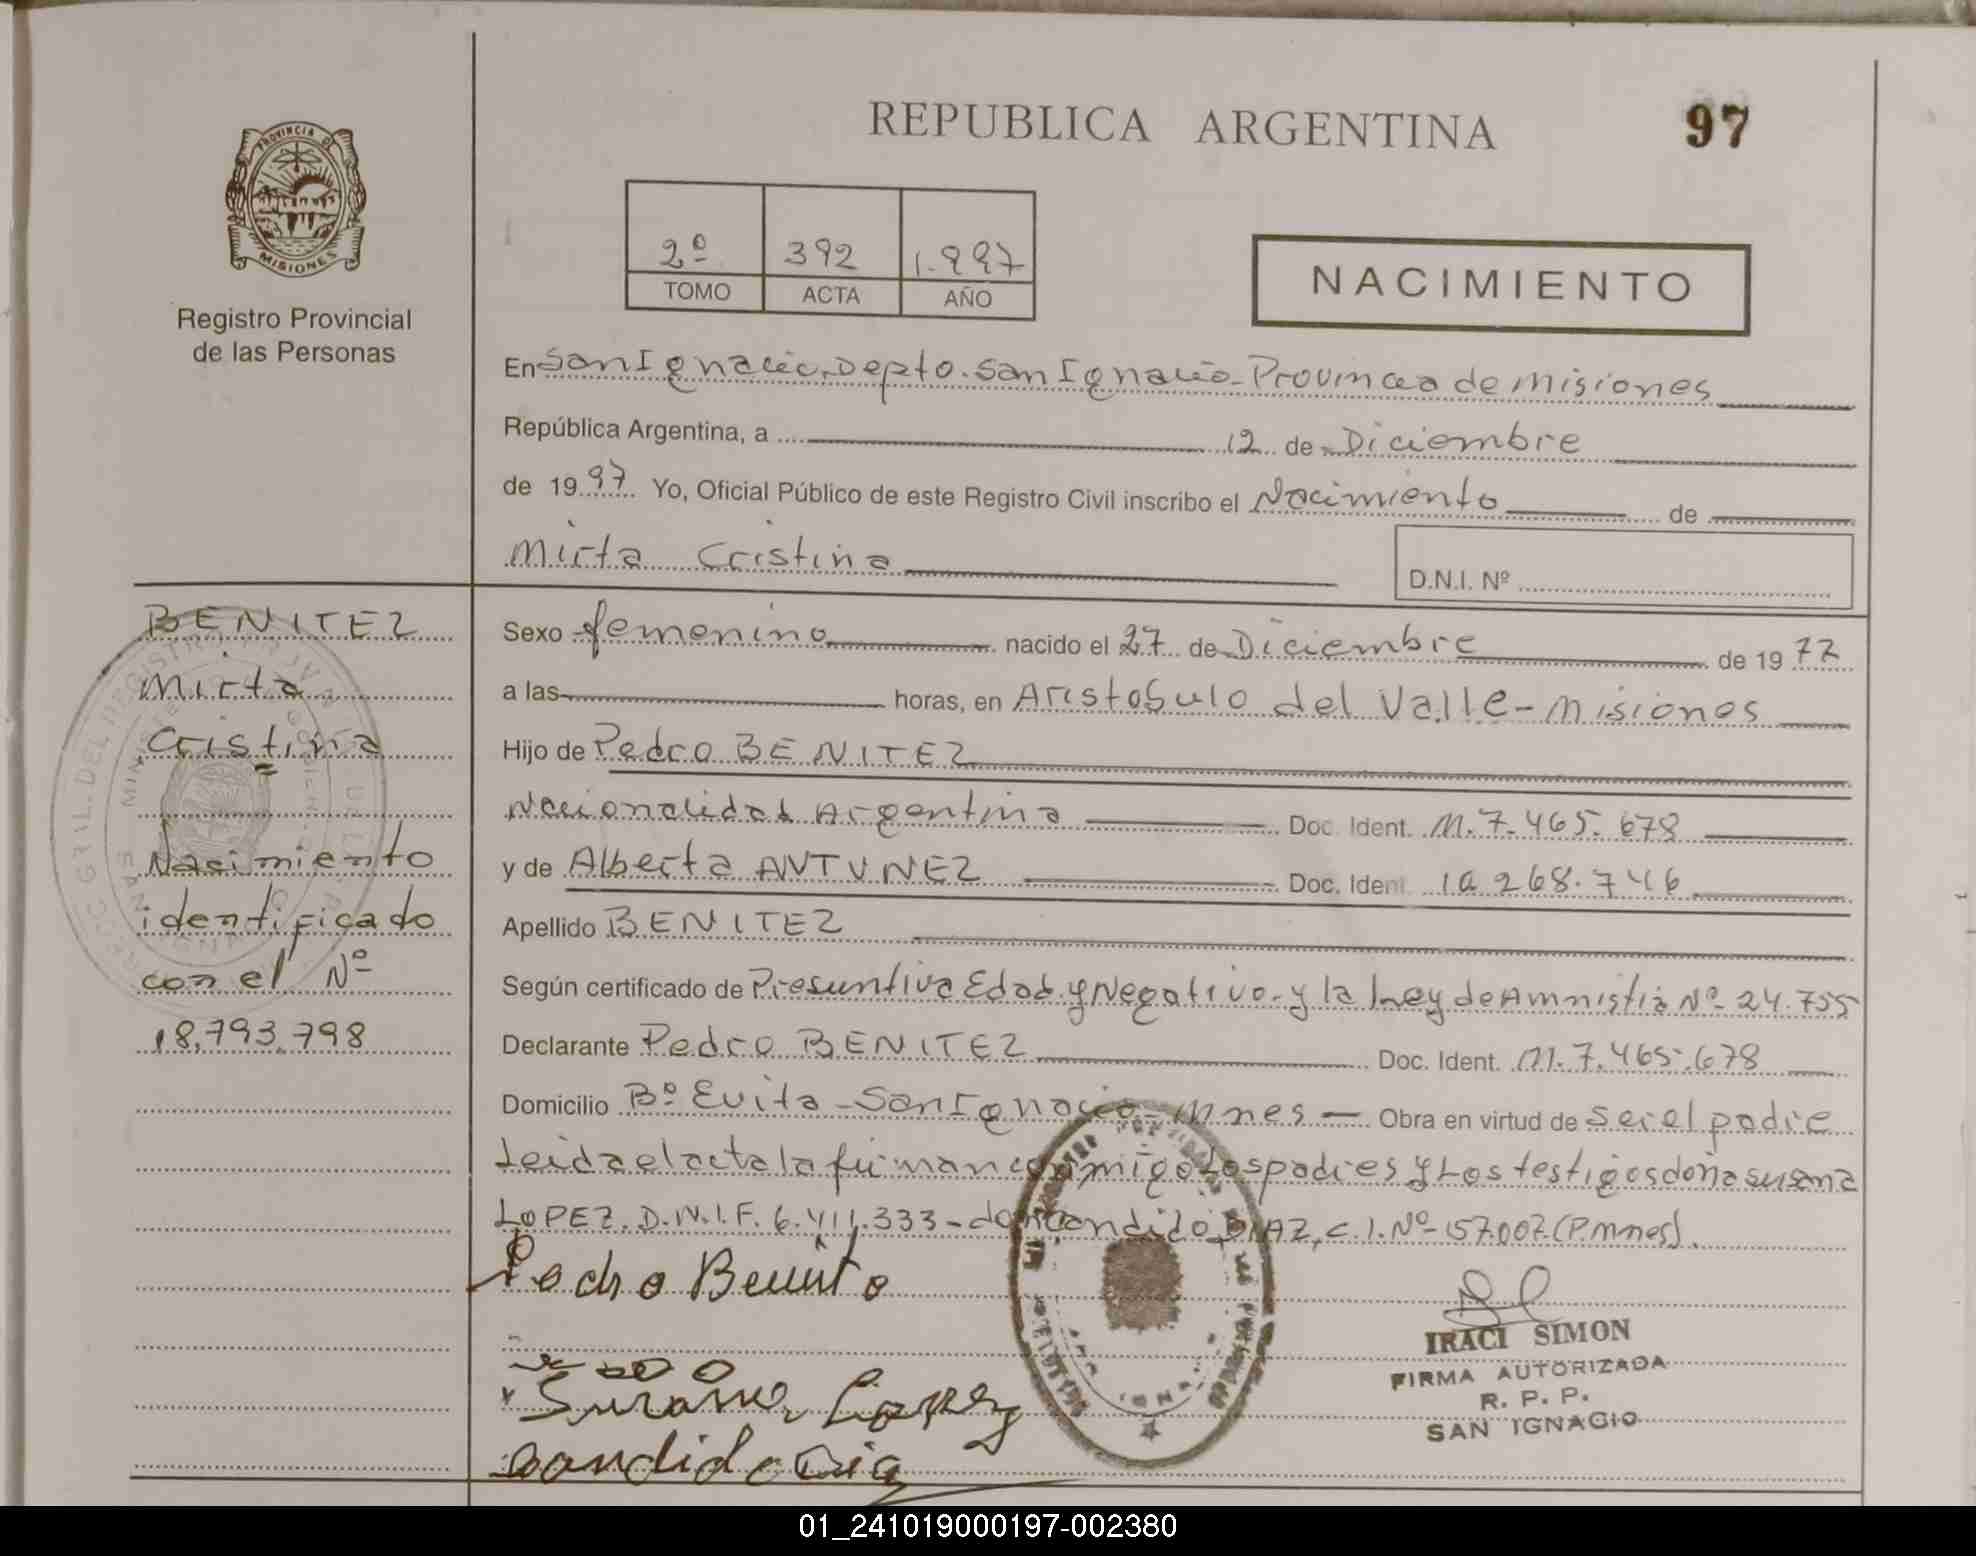 REPUBLICA ARGENTINA
97
PROVINCIA DE
MISIONES
Registro Provincial
de las Personas
2º 392 1.997
TOMO ACTA AÑO
NACIMIENTO
En San Ignacio, Depto. San Ignacio - Provincia de Misiones
República Argentina, a 12 de Diciembre
de 1997 Yo, Oficial Público de este Registro Civil inscribo el Nacimiento de
Mirta Cristina
D.N.I. Nº
BENITEZ
Mirta
Cristina
Nacimiento
identificado
con el Nº
18.793.798
Sexo femenino nacido el 27 de Diciembre de 1977
a las horas, en Aristobulo del Valle - Misiones
Hijo de Pedro BENITEZ
Nacionalidad Argentina Doc. Ident. M. 7.465.678
y de Alberta ANTUNEZ Doc. Ident. 10.268.746
Apellido BENITEZ
Según certificado de Presuntiva Edad y Negativo - y la Ley de Amnistia Nº 24.755
Declarante Pedro BENITEZ Doc. Ident. M. 7.465.678
Domicilio Bº Evita - San Ignacio - Mnes - Obra en virtud de ser el padre
Leida el acta la firman conmigo Los padres y Los testigos doña susana
LOPEZ. D.N.I.F. 6.411.333 - don Candido DIAZ, C.I. Nº 157.007 (P. mnes).
Pedro Benito
Susana Lopez
Candido Dia
IRACI SIMON
FIRMA AUTORIZADA
R. P. P.
SAN IGNACIO
01_241019000197-002380